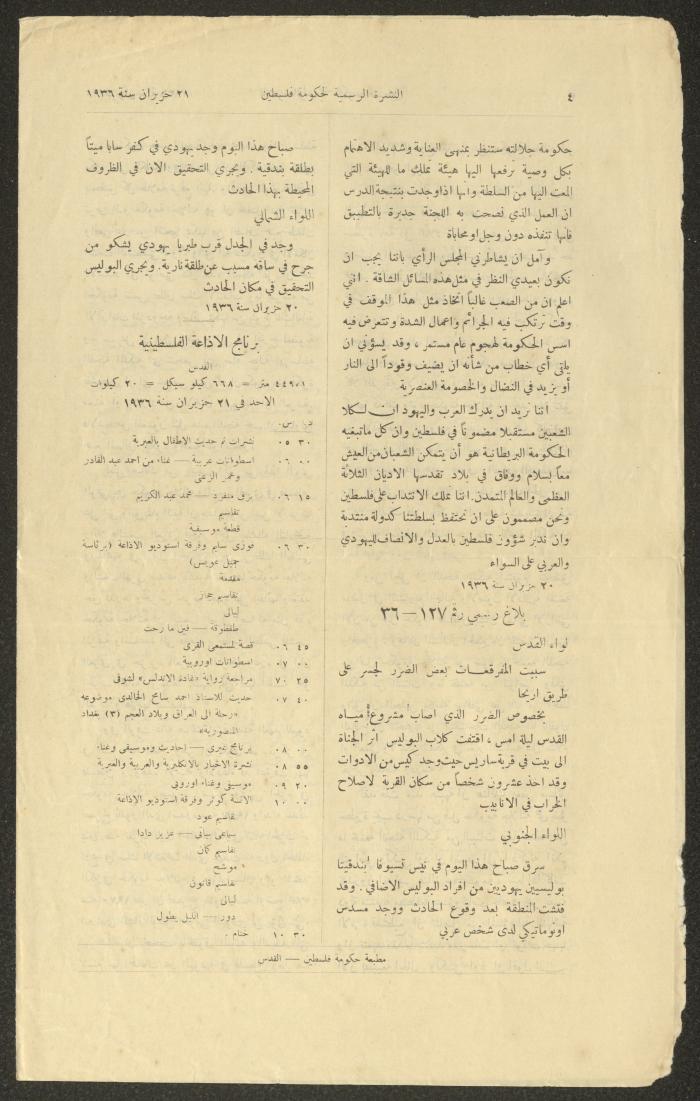 ٤
النشرة الرسمية لحكومة فلسطين
٢١ حزيران سنة ١٩٣٦
حكومة جلالته ستنظر بمنتهى العناية وشديد الاهتمام
بكل وصية ترفعها اليها هيئة بملك ما للهيئة التي
المعت اليها من السلطة وانها اذا وجدت بنتيجة الدرس
ان العمل الذي نصحت به اللجنة جديرة بالتطبيق
فانها تنفذه دون وجل او محاباة
وآمل ان يشاطرني المجلس الرأي باننا يجب ان
نكون بعيدي النظر في مثل هذه المسائل الشاقة . انني
اعلم ان من الصعب غالباً اتخاذ مثل هذا الموقف في
وقت ترتكب فيه الجرائم واعمال الشدة وتتعرض فيه
اسس الحكومة لهجوم عام مستمر ، وقد يسؤني ان
يلقى أي خطاب من شأنه ان يضيف وقوداً الى النار
أو يزيد في النضال والخصومة العنصرية
اننا نريد ان يدرك العرب واليهود ان لكلا
الشعبين مستقبلا مضموناً في فلسطين وان كل ما تبغيه
الحكومة البريطانية هو أن يتمكن الشعبان من العيش
معاً بسلام ووفاق في بلاد تقدسها الاديان الثلاثة
العظمى والعالم المتمدن. اننا نملك الانتداب على فلسطين
ونحن مصممون على ان نحتفظ بسلطتنا كدولة منتدبة
وان ندير شؤون فلسطين بالعدل والانصاف لليهودي
والعربي على السواء
٢٠ حزيران سنة ١٩٣٦
بلاغ رسمي رقم ١٢٧ – ٣٦
لواء القدس
سببت المفرقعات بعض الضرر لجسر على
طريق اريحا
بخصوص الضرر الذي اصاب مشروع مياه
القدس ليلة امس ، اقتفت كلاب البوليس اثر الجناة
الى بيت في قرية ساريس حيث وجد كيس من الادوات
وقد اخذ عشرون شخصاً من سكان القرية لاصلاح
الخراب في الانابيب
اللواء الجنوبي
سرق صباح هذا اليوم في نيس تسيونا بندقيتا
بوليسيين يهوديين من افراد البوليس الاضافي . وقد
فتشت المنطقة بعد وقوع الحادث ووجد مسدس
اوتوماتيكي لدى شخص عربي
صباح هذا اليوم وجد يهودي في كفر سابا ميتاً
بطلقة بندقية . ويجري التحقيق الان في الظروف
المحيطة بهذا الحادث
اللواء الشمالي
وجد في المجدل قرب طبريا يهودي يشكو من
جرح في ساقه مسبب عن طلقة نارية. ويجري البوليس
التحقيق في مكان الحادث
٢٠ حزيران سنة ١٩٣٦
برنامج الاذاعة الفلسطينية
القدس
٤٤٩٫١ متر = ٦٦٨ كيلو سيكل = ٢٠ كيلوات
الاحد في ٢١ حزيران سنة ١٩٣٦
د. س.
٣٠ ٠٥ نشرات ثم حديث الاطفال بالعبرية
٠٠ ٠٦ اسطوانات عربية — غناء من احمد عبد القادر
وعمر الزعني
١٥ ٠٦ عزف منفرد — محمد عبد الكريم
تقاسيم
قطعة موسيقية
٣٠ ٠٦ فوزي سليم وفرقة استوديو الاذاعة (برئاسة
جميل عويس)
مقدمة
تقاسيم حجاز
ليالي
طقطوقة — فين ما رحت
٤٥ ٠٦ قصة لمستمعي القرى
٠٠ ٠٧ اسطوانات اوروبية
٢٥ ٠٧ مراجعة رواية «غادة الاندلس» لشوقي
٤٠ ٠٧ حديث للاستاذ احمد سامح الخالدي موضوعه
«رحلة الى العراق وبلاد العجم (٣) بغداد
المنصورية»
٠٠ ٠٨ برنامج عبري — احاديث وموسيقى وغناء
٥٥ ٠٨ نشرة الاخبار بالانكليزية والعربية والعبرية
٢٠ ٠٩ موسيقى وغناء اوروبي
٠٠ ١٠ الآنسة كوثر وفرقة استوديو الاذاعة
تقاسيم عود
سماعي بياتي — عزيز دادا
تقاسيم كمان
موشح
تقاسيم قانون
ليالي
دور — الليل يطول
٣٠ ١٠ ختام .
مطبعة حكومة فلسطين — القدس